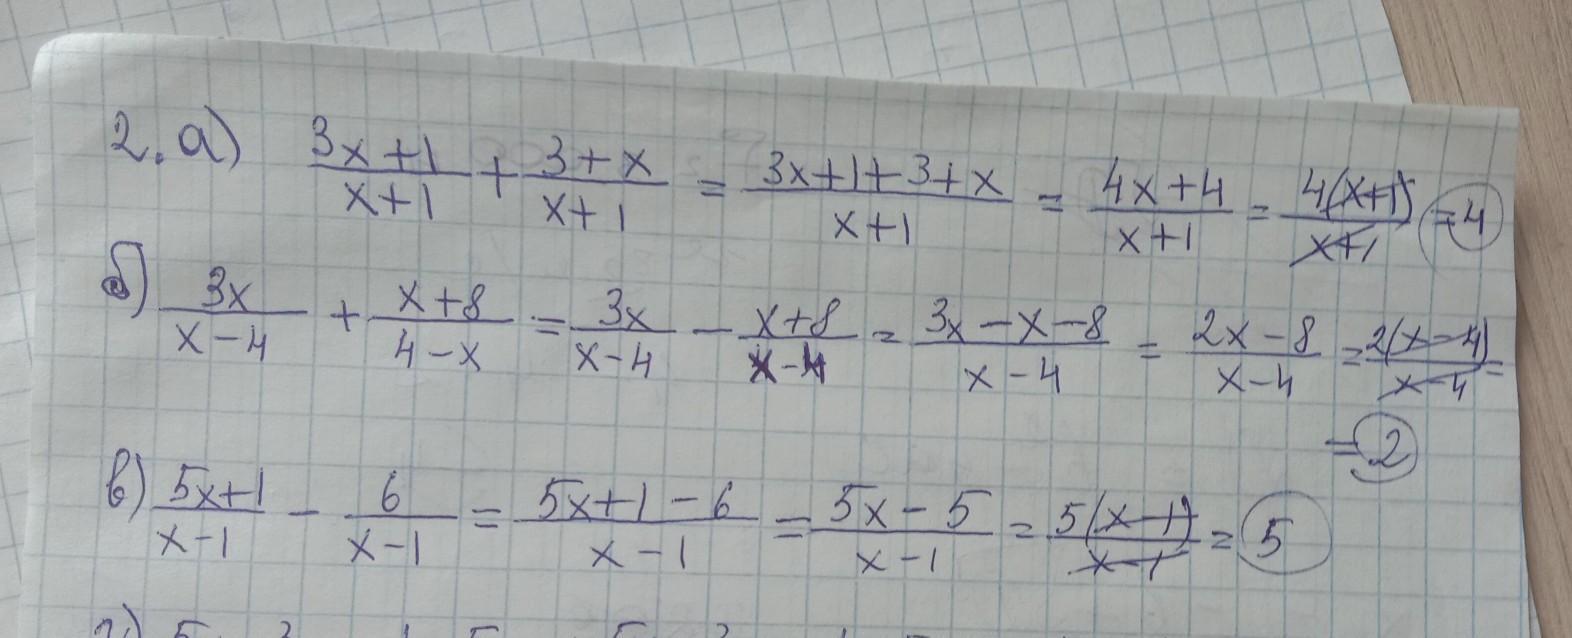 2. а) (3x+1)/(x+1) + (3+x)/(x+1) = (3x+1+3+x)/(x+1) = (4x+4)/(x+1) = 4(x+1)/(x+1) = 4
б) 3x/(x-4) + (x+8)/(4-x) = 3x/(x-4) - (x+8)/(x-4) = (3x-x-8)/(x-4) = (2x-8)/(x-4) = 2(x-4)/(x-4) =
= 2
в) (5x+1)/(x-1) - 6/(x-1) = (5x+1-6)/(x-1) = (5x-5)/(x-1) = 5(x-1)/(x-1) = 5